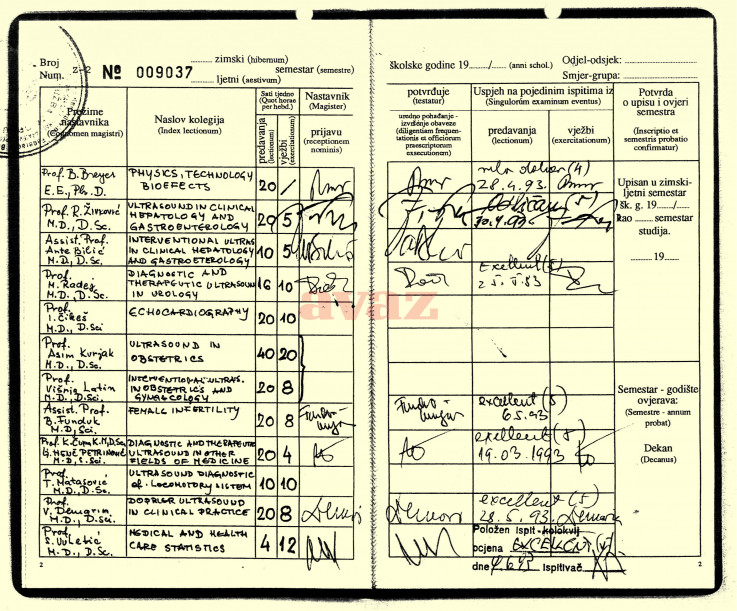 Broj
Num. Z-2 № 009037
zimski (hibernum)
semestar (semestre)
ljetni (aestivum)
Prezime nastavnika
(Cognomen magistri)
Naslov kolegija
(Index lectionum)
Sati tjedno
(Quot horae per hebd.)
predavanja (lectionum)
vježbi (exercitationum)
Nastavnik
(Magister)
prijavu
(receptionem nominis)
Prof. B. Breyer
E.E., Ph.D.
PHYSICS, TECHNOLOGY
BIOEFECTS
20 /
Prof. R. Živković
M.D., D.Sc.
ULTRASOUND IN CLINICAL
HEPATOLOGY AND
GASTROENTEROLOGY
20 5
Assist. Prof.
Ante Bilić
M.D., D.Sc.
INTERVENTIONAL ULTRAS
IN CLINICAL HEPATOLOGY
AND GASTROETEROLOGY
10 5
Prof.
M. Radej
M.D., D.Sc.
DIAGNOSTIC AND
THERAPEUTIC ULTRASOUND
IN UROLOGY
16 10
Prof.
I. Čikeš
M.D., D.Sci
ECHOCARDIOGRAPHY
20 10
Prof.
Asim Kurjak
M.D., D.Sc.
ULTRASOUND IN
OBSTETRICS
40 20
Prof.
Višnja Latin
M.D., D.Sci.
INTERVENTIONAL ULTRAS.
IN OBSTETRICS AND
GYNAECOLOGY
20 8
Assist. Prof.
B. Funduk
M.D., Sci.
FEMALE INFERTILITY
20 8
Prof. K. Čupak M.D, Sc.
HEDE PETRINOVIĆ
M.D., S.Sci.
DIAGNOSTIC AND THERAPEUTIC
ULTRASOUND IN OTHER
FIELDS OF MEDICINE
20 4
Prof.
T. Matasović
M.D., D.Sc.
ULTRASOUND DIAGNOSTIC
of LOCOMOTORY SISTEM
10 10
Prof.
V. Demarin
M.D., D.Sci.
DOPPLER ULTRASOUND
IN CLINICAL PRACTICE
20 8
Prof.
S. Vuletić
M.D., D.Sc.
MEDICAL AND HEALTH
CARE STATISTICS
4 12
2
avaz
školske godine 19....../...... (anni schol.)
Odjel-odsjek:
Smjer-grupa:
potvrđuje
(testatur)
uredno pohađanje -
izvršenje obaveze
(diligentiam frequen-
tationis et officiorum
praescriptorum
exsecutionem)
Uspjeh na pojedinim ispitima iz
(Singulorum examinum eventus)
predavanja
(lectionum)
vježbi
(exercitationum)
Potvrda
o upisu i ovjeri
semestra
(Inscriptio et
semestris probatio
confirmatur)
(4)
28.4.93.
Upisan u zimski-
ljetni semestar
šk. g. 19....../......
kao ...... semestar
studija.
......19......
Exellent (5)
excellent (5)
6.5.93
exellent (5)
19.03.1993
excellent (5)
28.5.93.
Semestar - godište
ovjerava:
(Semestre - annum
probat)
Dekan
(Decanus)
Položen ispit-kolokvij
ocjena EXCELENT
dne ispitivač
2